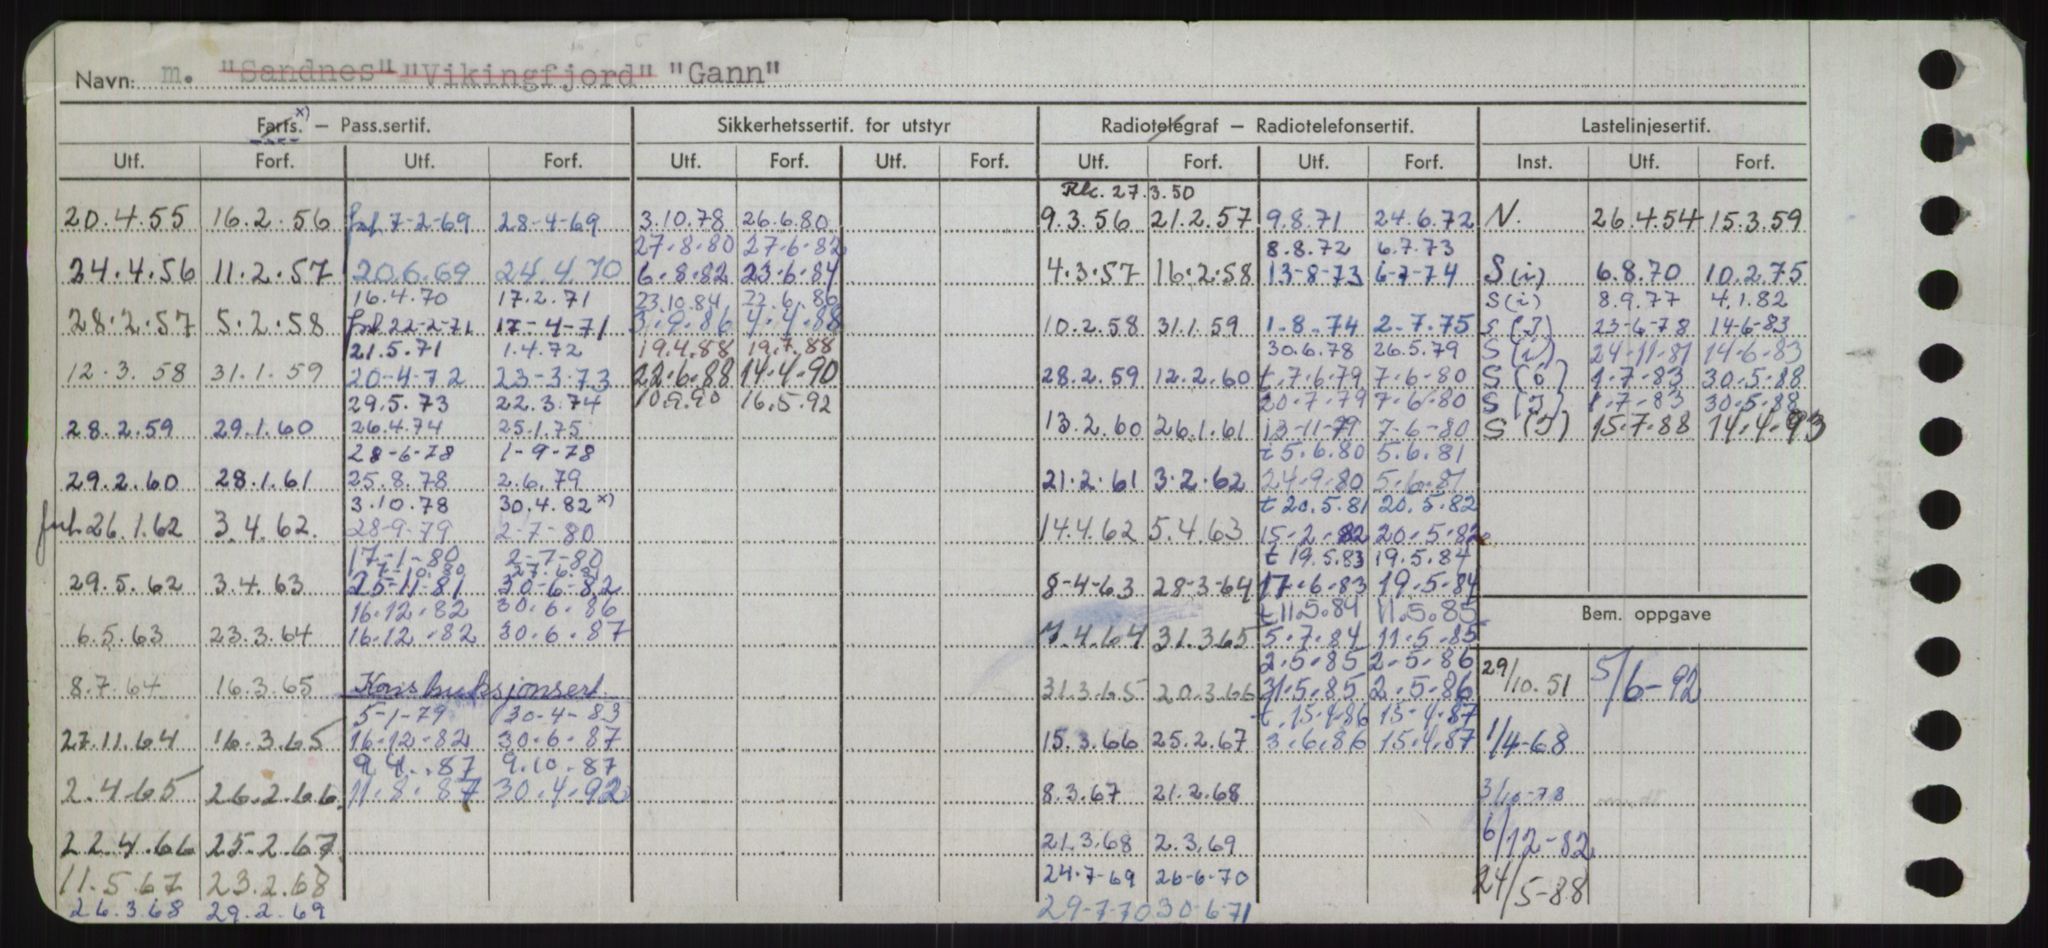 Navn: m. "Sandnes" "Vikingfjord" "Gann"
Farts. x) — Pass.sertif. Sikkerhetssertif. for utstyr Radiotelegraf — Radiotelefonsertif. Lastelinjesertif.
Utf. Forf. Utf. Forf. Utf. Forf. Utf. Forf. Utf. Forf. Utf. Forf. Inst. Utf. Forf.
27.3.50
20.4.55 16.2.56 7-2-69 28-4-69 3.10.78 26.6.80 9.3.56 21.2.57 9.8.71 24.6.72 N. 26.4.54 15.3.59
27.8.80 27.6.82 8.8.72 6.7.73
24.4.56 11.2.57 20.6.69 24.4.70 6.8.82 23.6.84 4.3.57 16.2.58 13-8-73 6-7-74 S(i) 6.8.70 10.2.75
16.4.70 17.2.71 23.10.84 22.6.86 S(i) 8.9.77 4.1.82
28.2.57 5.2.58 22-2-71 17-4-71 3.9.86 4.4.88 10.2.58 31.1.59 1.8.74 2.7.75 S(I) 23-6-78 14-6-83
21.5.71 1.4.72 19.4.88 19.7.88 30.6.78 26.5.79 S(i) 24-11-81 14-6-83
12.3.58 31.1.59 20-4-72 23-3-73 22.6.88 14.4.90 28.2.59 12.2.60 t.7.6.79 7-6-80 S(o) 1.7.83 30.5.88
29.5.73 22.3.74 10.9.90 16.5.92 20.7.79 7.6.80 S(I) 1.7.83 30.5.88
28.2.59 29.1.60 26.4.74 25.1.75 13.2.60 26.1.61 13-11-79 7-6-80 S(I) 15.7.88 14.4.93
28-6-78 1-9-78 t 5.6.80 5.6.81
29.2.60 28.1.61 25.8.78 2.6.79 21.2.61 3.2.62 24.9.80 5.6.81
3.10.78 30.4.82 x) t 20.5.81 20.5.82
26.1.62 3.4.62. 28-9-79 2-7-80 14.4.62 5.4.63 15-2-82 20-5-82
17-1-80 2-7-80 t 19.5.83 19.5.84
29.5.62 3.4.63 25-11-81 30-6-82 8-4-63 28-3-64 17.6.83 19.5.84
16.12.82 30.6.86 t 11.5.84 11.5.85
Bem. oppgave
6.5.63 23.3.64 16.12.82 30.6.87 7.4.64 31.3.65 5.7.84 11.5.85
2.5.85 2.5.86
8.7.64 16.3.65 Konstruksjonsert. 31.3.65 20.3.66 31.5.85 2.5.86 29/10.51 5/6-92
5-1-79 30-4-83 t. 15.4.86 15.4.87
27.11.64 16.3.65 16.12.82 30.6.87 15.3.66 25.2.67 3.6.86 15.4.87 1/4-68
9.4.87 9.10.87
2.4.65 26.2.66 11.8.87 30.4.92 8.3.67 21.2.68 3/10-78
22.4.66 25.2.67 21.3.68 2.3.69 6/12-82
11.5.67 23.2.68 24.7-69 26-6-70 24/5-88
26.3.68 29.2.69 29-7-70 30-6-71